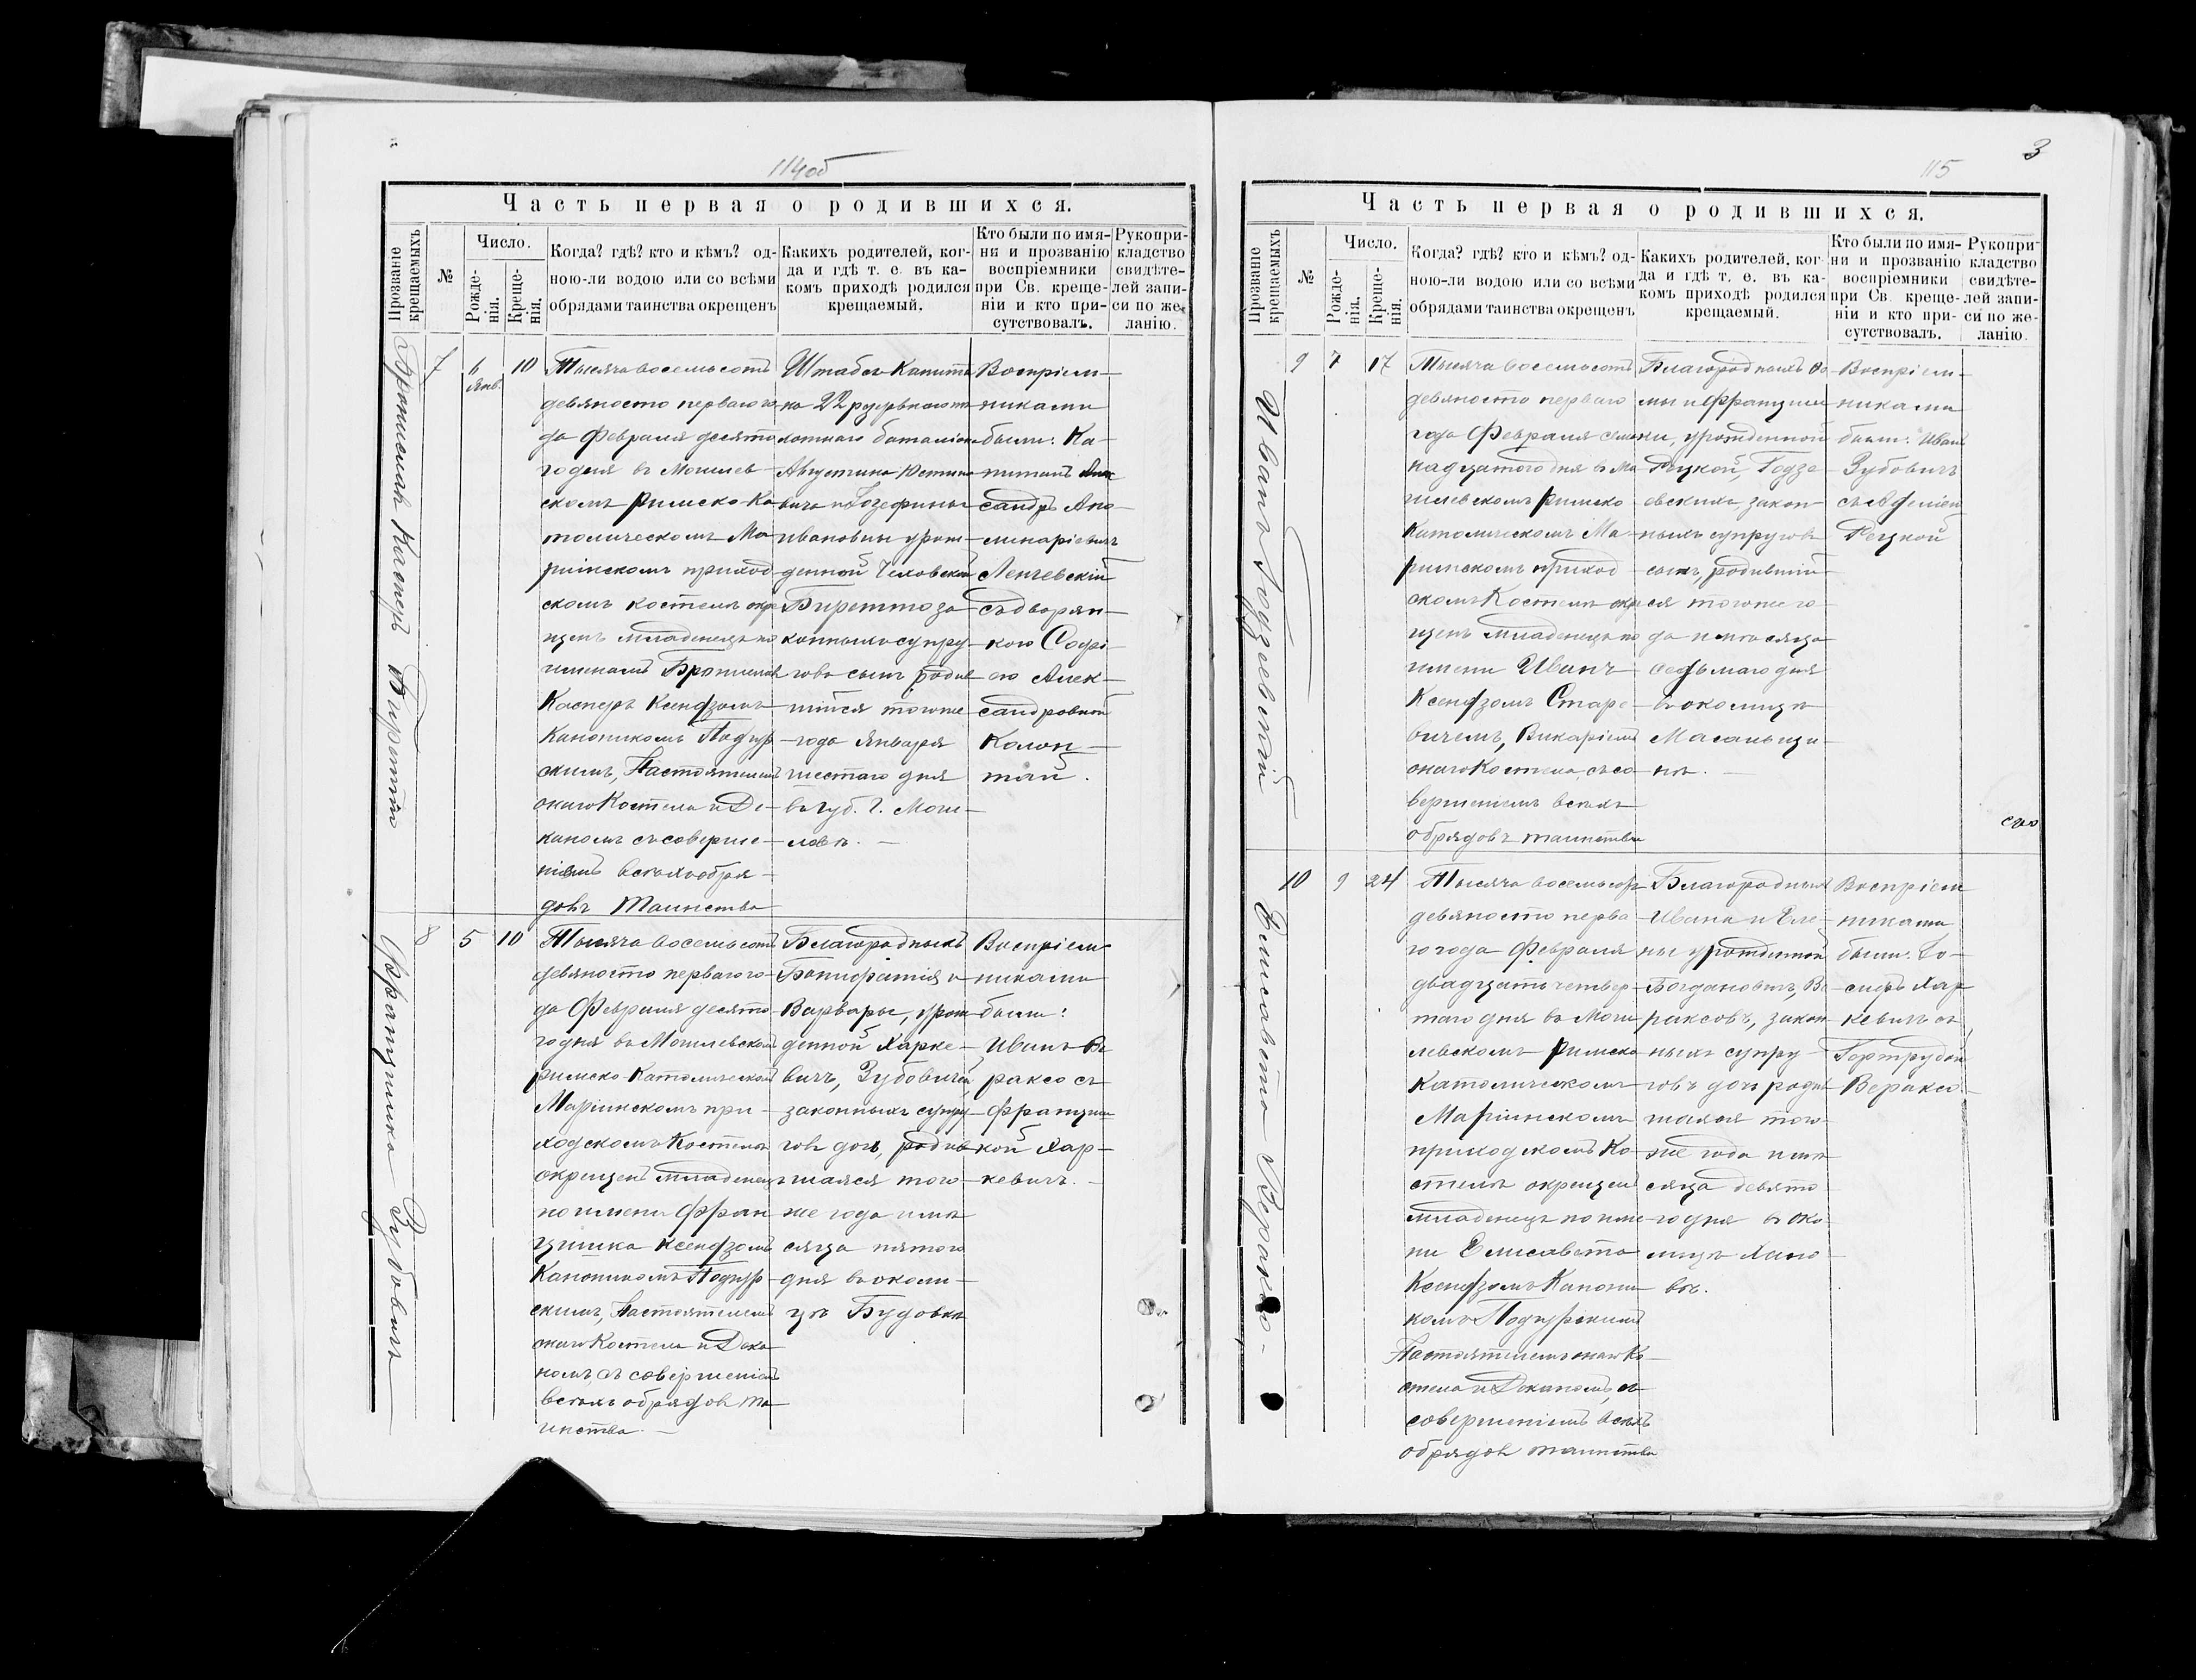 114об
Часть первая о родившихся.
Прозваніе крещаемыхъ
№
Число.
Рожденія.
Крещенія.
Когда? гдѣ? кто и кѣмъ? од-
ною-ли водою или со всѣми
обрядами таинства окрещенъ
Какихъ родителей, ког-
да и гдѣ т. е. въ ка-
комъ приходѣ родился
крещаемый.
Кто были по имя-
ни и прозванію
воспріемники
при Св. креще-
ніи и кто при-
сутствовалъ.
Рукопри-
кладство
свидѣте-
лей запи-
си по же-
ланію.
Брониславъ Касперъ Биретто
7
6
Янв.
10
Тысяча восемьсотъ
девяносто перваго го-
да Февраля десята-
го дня въ Могилев-
скомъ Римско-Ка-
толическомъ Ма-
ріинскомъ приход-
скомъ костелѣ окре-
щенъ младенецъ по
именамъ Брониславъ
Касперъ Ксендзомъ
Каноникомъ
скимъ, Настоятелемъ
онаго Костела и Де-
каномъ съ соверше-
ніемъ всѣхъ обря-
довъ Таинства
Штабсъ-Капита-
на 22 резервнаго пѣ-
хотнаго баталіона
Августина Юстино-
вича и Іозефины
Ивановны урож-
денной
Биретто за-
конныхъ супру-
говъ сынъ, родив-
шійся тогоже
года Января
шестаго дня
въ губ. г. Моги-
левѣ.
Воспріем-
никами
были: Ка-
питанъ Алек-
сандръ Апо-
линаріевичъ
Ленчевскій
съ дворян-
кою Софі-
ею Алек-
сандровной
Колон-
тай.
Францишка Зубовичъ
8
5
10
Тысяча восемьсотъ
девяносто перваго го-
да Февраля десята-
го дня въ Могилевскомъ
Римско-Католическомъ
Маріинскомъ при-
ходскомъ Костелѣ
окрещенъ младенецъ
по имени Фран-
цишка Ксендзомъ
Каноникомъ
скимъ, Настоятелемъ
онаго Костела и Дека-
номъ, съ совершеніемъ
всѣхъ обрядовъ та-
инства.
Благородныхъ
Бонифатія и
Варвары, урож-
денной Харке-
вичъ, Зубовичей
законныхъ супру-
говъ дочь, родив-
шаяся того-
же года и мѣ-
сяца пятого
дня въ околи-
цѣ Будовкѣ
Воспріем-
никами
были:
Иванъ Ве-
раксо съ
Францишкой Хар-
кевичъ.
3
115
Часть первая о родившихся.
Прозваніе крещаемыхъ
№
Число.
Рожденія.
Крещенія.
Когда? гдѣ? кто и кѣмъ? од-
ною-ли водою или со всѣми
обрядами таинства окрещенъ
Какихъ родителей, ког-
да и гдѣ т. е. въ ка-
комъ приходѣ родился
крещаемый.
Кто были по имя-
ни и прозванію
воспріемники
при Св. креще-
ніи и кто при-
сутствовалъ.
Рукопри-
кладство
свидѣте-
лей запи-
си по же-
ланію.
Иванъ Годзевскій
9
7
17
Тысяча восемьсотъ
девяносто перваго
года Февраля сем-
надцатого дня въ Мо-
гилевскомъ Римско
Католическомъ Ма-
ріинскомъ приход-
скомъ Костелѣ окре-
щенъ младенецъ по
имени Иванъ
Ксендзомъ Старе-
вичемъ, Викаріемъ
онаго Костела, съ со-
вершеніемъ всѣхъ
обрядовъ таинства
Благородныхъ Ѳо-
мы и Францишки, урожденной
Рецкой, Годзе-
евскихъ, закон-
ныхъ супруговъ
сынъ, родившій-
ся тогоже го-
да и мѣсяца
седьмаго дня
въ околицѣ
нѣ.
Воспріем-
никами
были: Иванъ
Зубовичъ
съ
Рецкой
Елисавета Вераксо
10
9
24
Тысяча восемьсотъ
девяносто перва-
го года Февраля
двадцать четвер-
таго дня въ Моги-
левскомъ Римско
Католическомъ
Маріинскомъ
приходскомъ Ко-
стелѣ окрещенъ
младенецъ по име-
ни Елисавета
Ксендзомъ Канони-
комъ
Настоятелемъ онаго Ко-
стела и Деканомъ, съ
совершеніемъ всѣхъ
обрядовъ таинства
Благородныхъ
Ивана и Еле-
ны урожденной
Богдановичъ, Ве-
раксовъ, закон-
ныхъ супру-
говъ дочь, родив-
шаяся того-
же года и мѣ-
сяца девято-
го дня въ око-
лицѣ Хано-
вкѣ.
Воспріем-
никами
были: Іо-
сифъ Хар-
кевичъ съ
Гертрудой
Вераксо.